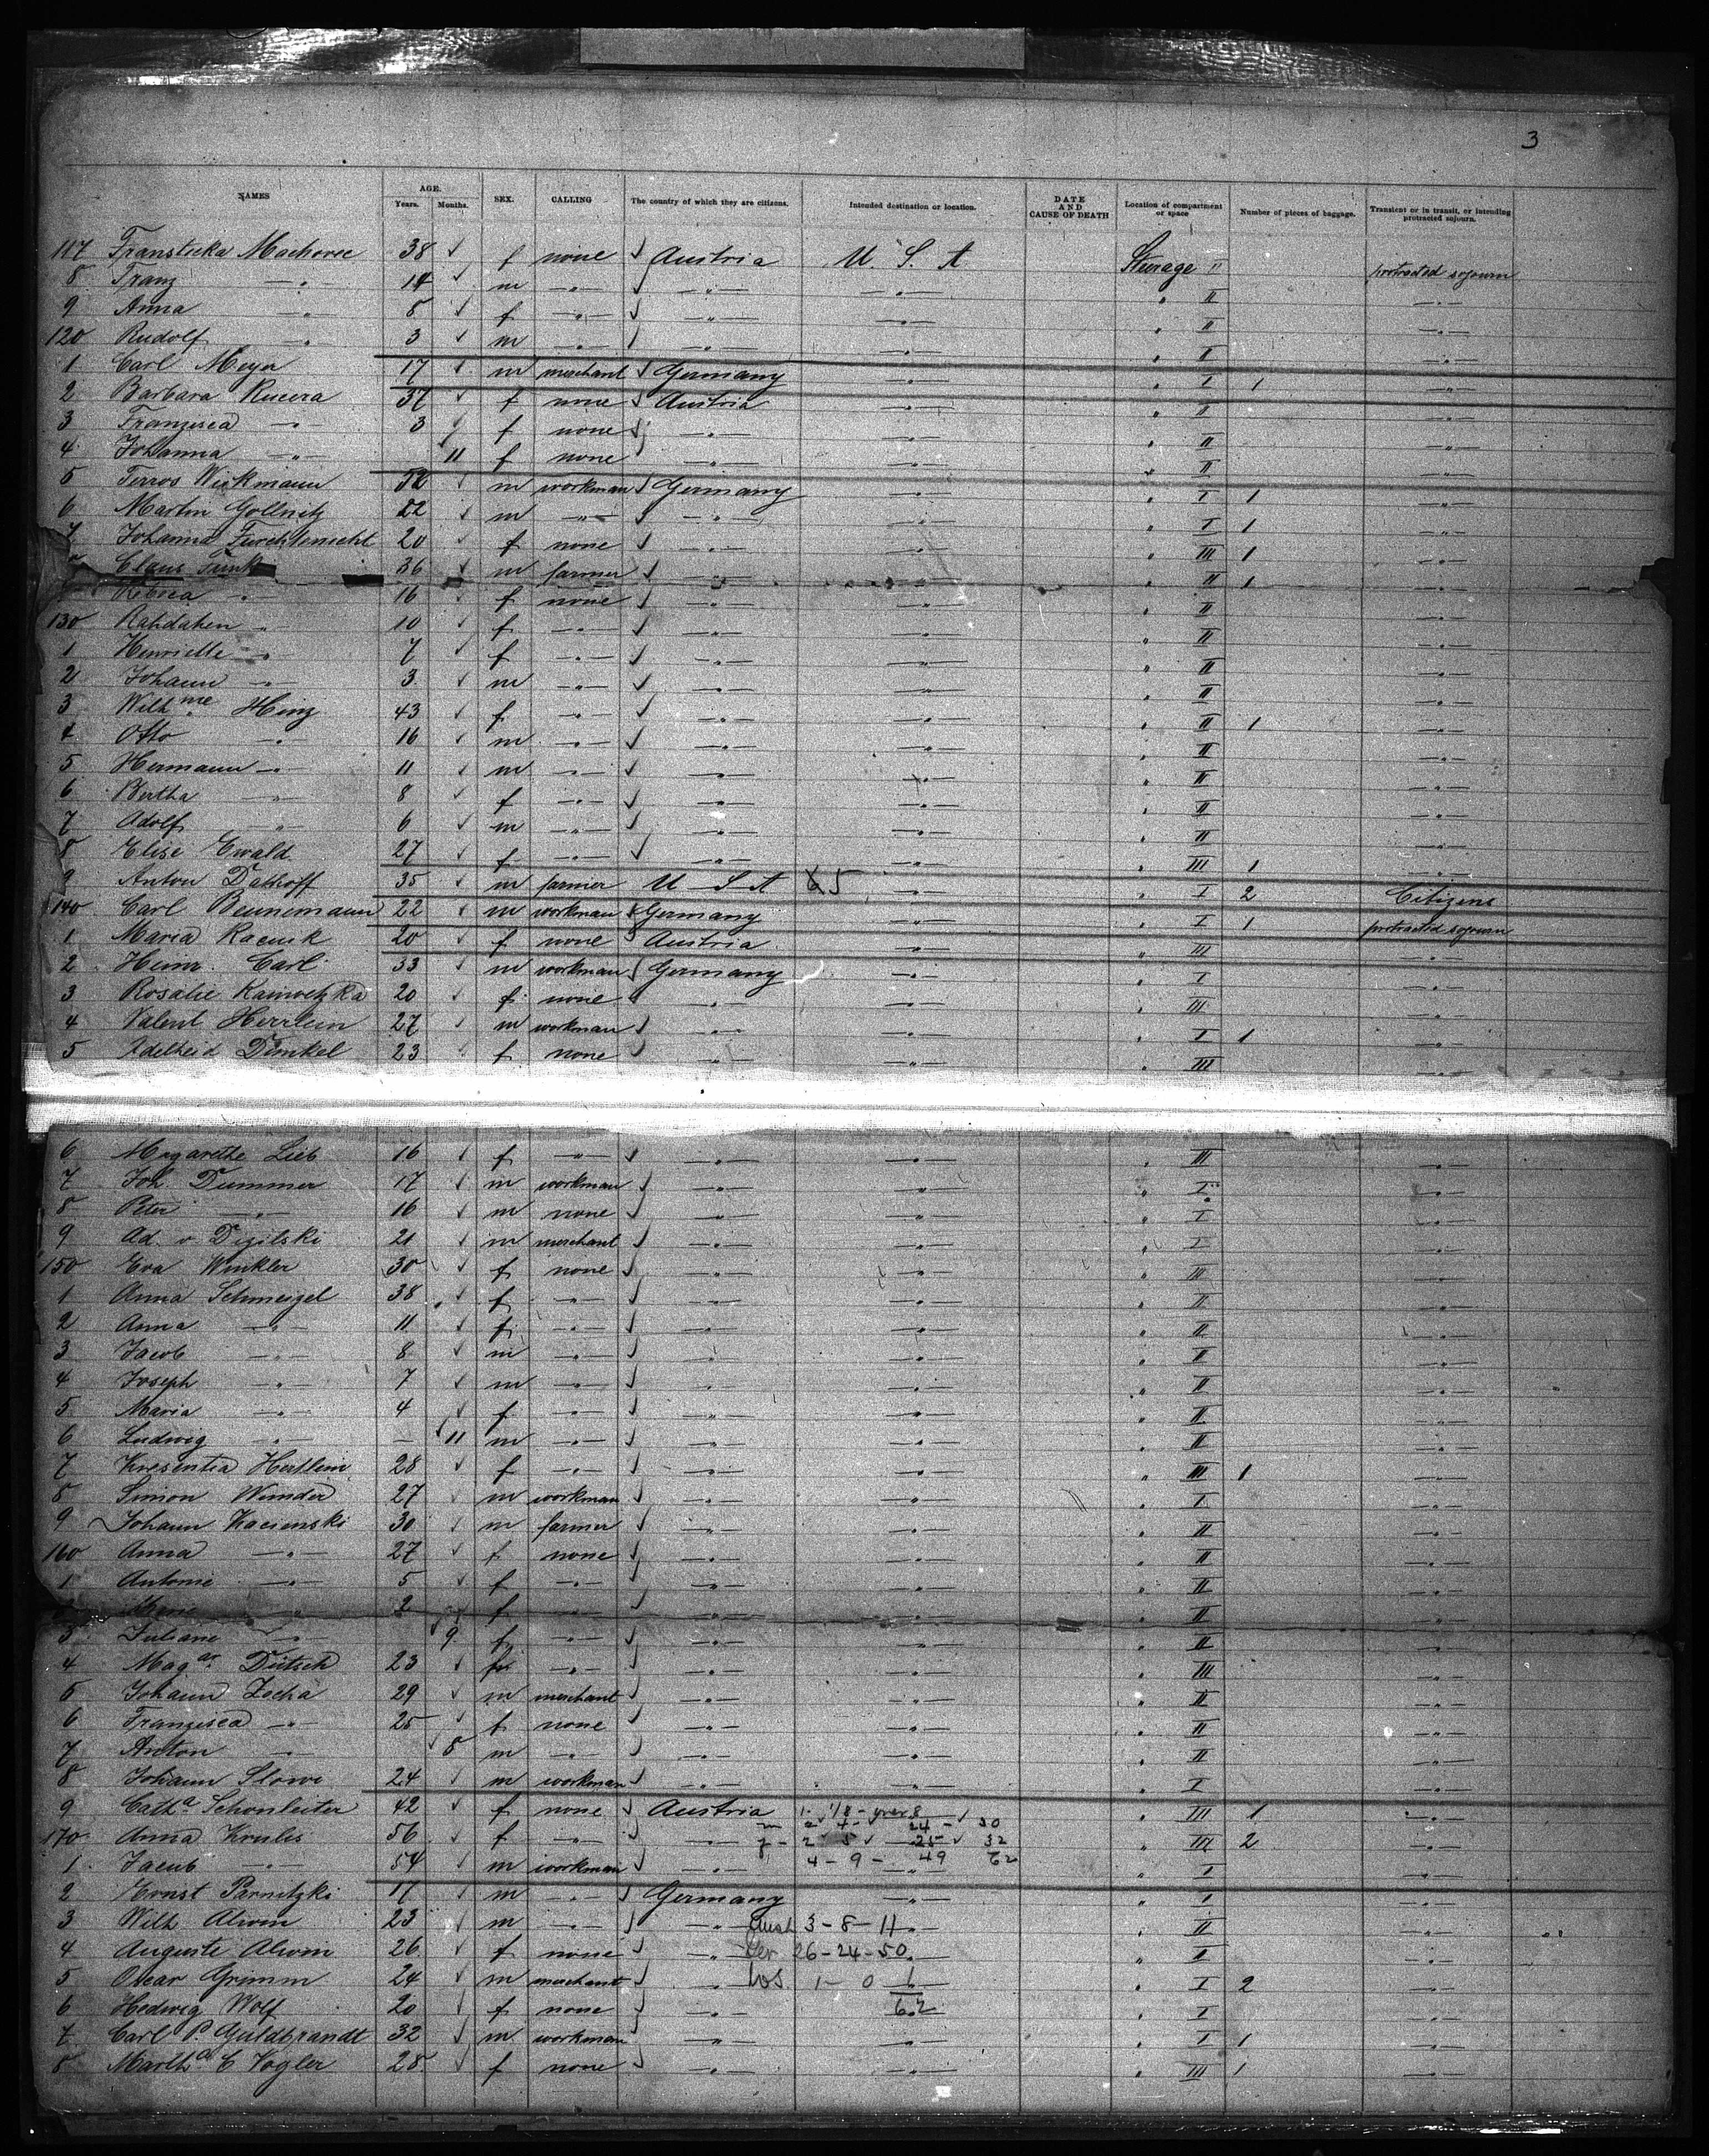 3
NAMES AGE. Years. Months. SEX. CALLING The country of which they are citizens. Intended destination or location. DATE AND CAUSE OF DEATH Location of compartment or space Number of pieces of baggage. Transient or in transit, or intending protracted sojourn.
117 Machovec 38 ✓ f none ✓ Austria U. S. A Steerage II protracted sojourn
8 Franz -"- 14 ✓ m -"- ✓ -"- -"- " II -"-
9 Anna -"- 8 ✓ f -"- ✓ -"- -"- " II -"-
120 Rudolf -"- 3 ✓ m -"- ✓ -"- -"- " II -"-
1 Carl Meyer 17 ✓ m merchant ✓ Germany -"- " I 1 -"-
2 Barbara Kucera 37 ✓ f none ✓ Austria -"- " II -"-
3 Franzisca -"- 3 ✓ f none ✓ -"- -"- " II -"-
4 Johanna -"- 11 f none -"- -"- " II -"-
5 Wickmann 52 ✓ m workman ✓ Germany -"- " I 1 -"-
6 Martin Gollnitz 22 ✓ m -"- ✓ -"- -"- " I 1 -"-
7 Johanna 20 ✓ f none ✓ -"- -"- " III 1 -"-
Claus 36 ✓ m farmer ✓ -"- -"- " II 1 -"-
-"- 16 ✓ f none ✓ -"- -"- " II -"-
130 -"- 10 ✓ f -"- ✓ -"- -"- " II -"-
1 Henriette -"- 7 ✓ f -"- ✓ -"- -"- " II -"-
2 Johann -"- 3 ✓ m -"- ✓ -"- -"- " II -"-
3 Wilhme Hinz 43 ✓ f -"- ✓ -"- -"- " II 1 -"-
4 Otto -"- 16 ✓ m -"- ✓ -"- -"- " II -"-
5 Hermann -"- 11 ✓ m -"- ✓ -"- -"- " II -"-
6 Bertha -"- 8 ✓ f -"- ✓ -"- -"- " II -"-
7 Adolf -"- 6 ✓ m -"- ✓ -"- -"- " II -"-
8 Elise Ewald 27 ✓ f -"- ✓ -"- -"- " III 1 -"-
9 Anton Dathoff 35 ✓ m farmer U S A 5 -"- " I 2 Citizens
140 Carl Bennemann 22 ✓ m workman Germany -"- " I 1 protracted sojourn
1 Maria Racnik 20 ✓ f none Austria -"- " III
2 Heinr. Carl 33 ✓ m workman Germany -"- " I -"-
3 Rosalie 20 ✓ f none ✓ -"- -"- " III -"-
4 Valent Herrlein 27 ✓ m workman ✓ -"- -"- " I 1 -"-
5 Adelheid Dinkel 23 f none ✓ -"- -"- " III -"-
6 Magarethe Lieb 16 ✓ f -"- ✓ -"- -"- " III -"-
7 Joh. Dummer 17 ✓ m workman ✓ -"- -"- " I -"-
8 Peter -"- 16 ✓ m none ✓ -"- -"- " I -"-
9 Ad. v 21 ✓ m merchant ✓ -"- -"- " I -"-
150 Eva Winkler 30 ✓ f none ✓ -"- -"- " III -"-
1 Anna Schmeigel 38 ✓ f -"- ✓ -"- -"- " II -"-
2 Anna -"- 11 ✓ f -"- ✓ -"- -"- " II -"-
3 Jacob -"- 8 ✓ m -"- ✓ -"- -"- " II -"-
4 Joseph -"- 7 ✓ m -"- ✓ -"- -"- " II -"-
5 Maria -"- 4 ✓ f -"- ✓ -"- -"- " II -"-
6 Ludwig -"- — 11 m -"- ✓ -"- -"- " II -"-
7 Kresentia Hertlein 28 ✓ f -"- ✓ -"- -"- " III 1 -"-
8 Simon Wunder 27 ✓ m workman ✓ -"- -"- " I -"-
9 Johann Kacienski 30 ✓ m farmer ✓ -"- -"- " II -"-
160 Anna -"- 27 ✓ f none ✓ -"- -"- " II -"-
1 Antonie -"- 5 ✓ f -"- ✓ -"- -"- " II -"-
2 Marie -"- 2 ✓ f -"- ✓ -"- -"- " II -"-
3 Juliane -"- 9 f -"- ✓ -"- -"- " II -"-
4 Magar Dütsch 23 ✓ f -"- ✓ -"- -"- " III -"-
5 Johann Zocha 29 ✓ m merchant ✓ -"- -"- " II -"-
6 Franzisca -"- 25 ✓ f none ✓ -"- -"- " II -"-
7 Anton -"- 8 m -"- ✓ -"- -"- " II -"-
8 Johann Slowi 24 ✓ m workman ✓ -"- -"- " I -"-
9 Catha Schonleiter 42 ✓ f none ✓ Austria 1. 1/8 - over 8 " III 1 -"-
m 2 4 - 24 - 30
170 Anna Krulis 56 ✓ f -"- ✓ -"- f - 2 5 ✓ 25 ✓ 32 " III 2 -"-
1 Jacub -"- 54 ✓ m workman ✓ -"- 4 - 9 - 49 62 " I -"-
2 Ernst Parnitzki 17 ✓ m -"- ✓ Germany -"- " I -"-
3 Wilh Alwin 23 ✓ m -"- ✓ -"- Aust 3 - 8 - 11 " II -"-
4 Auguste Alwin 26 ✓ f none ✓ -"- Ger 26 - 24 - 50 " II -"-
5 Oscar Grimm 24 ✓ m merchant ✓ -"- U.S. 1 - 0 1 " I 2 -"-
6 Hedwig Wolf 20 ✓ f none ✓ -"- 62 " I -"-
7 Carl P. Guldbrandt 32 ✓ m workman -"- -"- " I 1 -"-
8 Martha C Vogler 28 ✓ f none ✓ -"- -"- " III 1 -"-